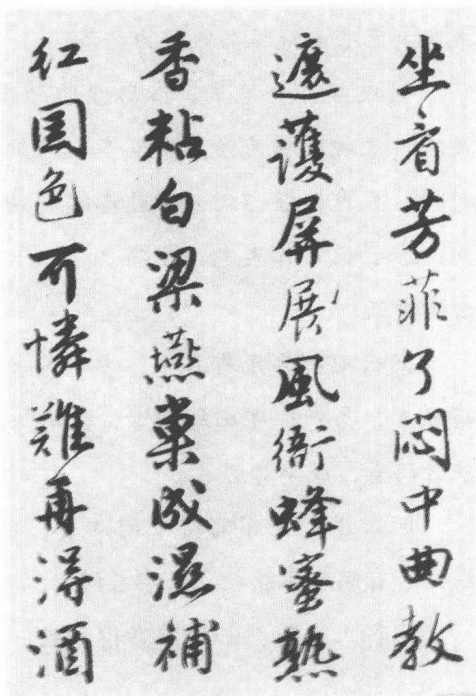 坐看芳菲了悶中曲教
遮護屏展風衙蜂蜜熟
香粘白梁燕巢成濕補
紅国色可憐難再得酒